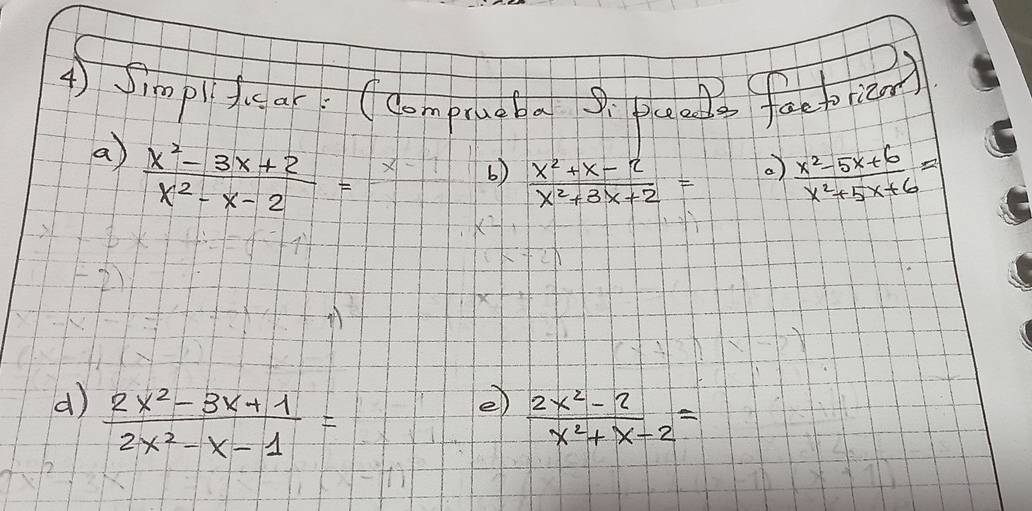 4) Simplificar: (Comprueba si puedes factorizar)
a) x² - 3x + 2 / x² - x - 2 = b) x² + x - 2 / x² + 3x + 2 = c) x² - 5x + 6 / x² + 5x + 6 =
d) 2x² - 3x + 1 / 2x² - x - 1 = e) 2x² - 2 / x² + x - 2 =